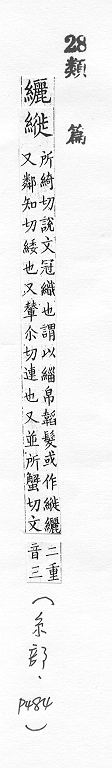 28類篇
纚縰
所綺切說文冠織也謂以緇帛韜髮或作縰纚
又鄰知切緌也又輦尒切連也又並所蟹切文
二重
音三
(糸部.P484)